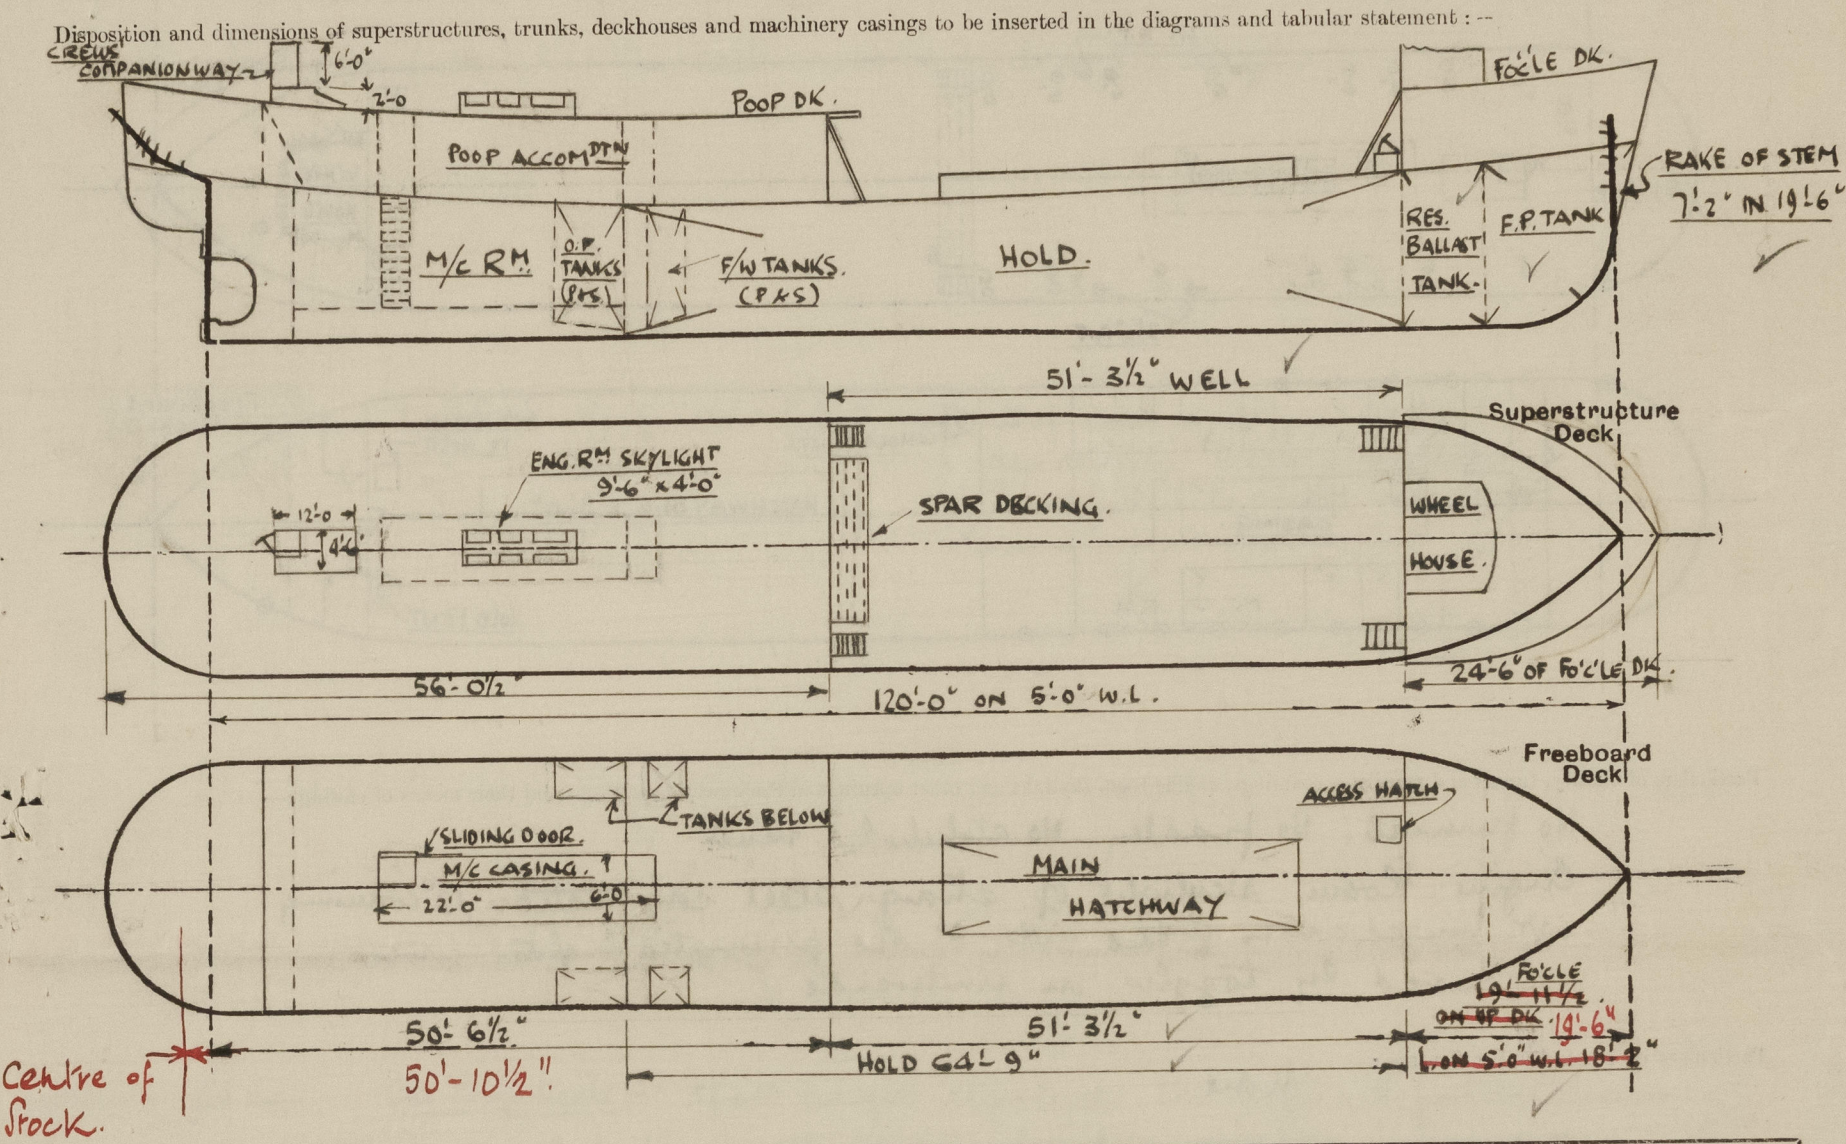 Disposition and dimensions of superstructures, trunks, deckhouses and machinery casings to be inserted in the diagrams and tabular statement : --
CREWS'
COMPANIONWAY
6'-0"
2'-0
POOP DK.
FO'C'LE DK.
POOP ACCOMDTN
RAKE OF STEM
7'-2" IN 19'-6"
M/C RM.
O.F.
TANKS
(P&S)
F/W TANKS.
(P&S)
HOLD.
RES.
BALLAST
TANK.
F.P. TANK
51'- 3½" WELL
Superstructure
Deck
ENG. RM SKYLIGHT
9'-6" x 4'-0"
12'-0
4'-6"
SPAR DECKING.
WHEEL
HOUSE.
56'- 0½"
120'-0" ON 5'-0" W.L.
24'-6" OF FO'C'LE DK.
Freeboard
Deck
ACCESS HATCH
TANKS BELOW
SLIDING DOOR.
M/C CASING.
22'-0"
6'-0
MAIN
HATCHWAY
FO'CLE
19'- 11½
ON UP DK. 19'-6"
L. ON 5'0" W.L. 18'-2"
50'- 6½"
51'- 3½"
HOLD 64'- 9"
50'-10½".
Centre of
Stock.